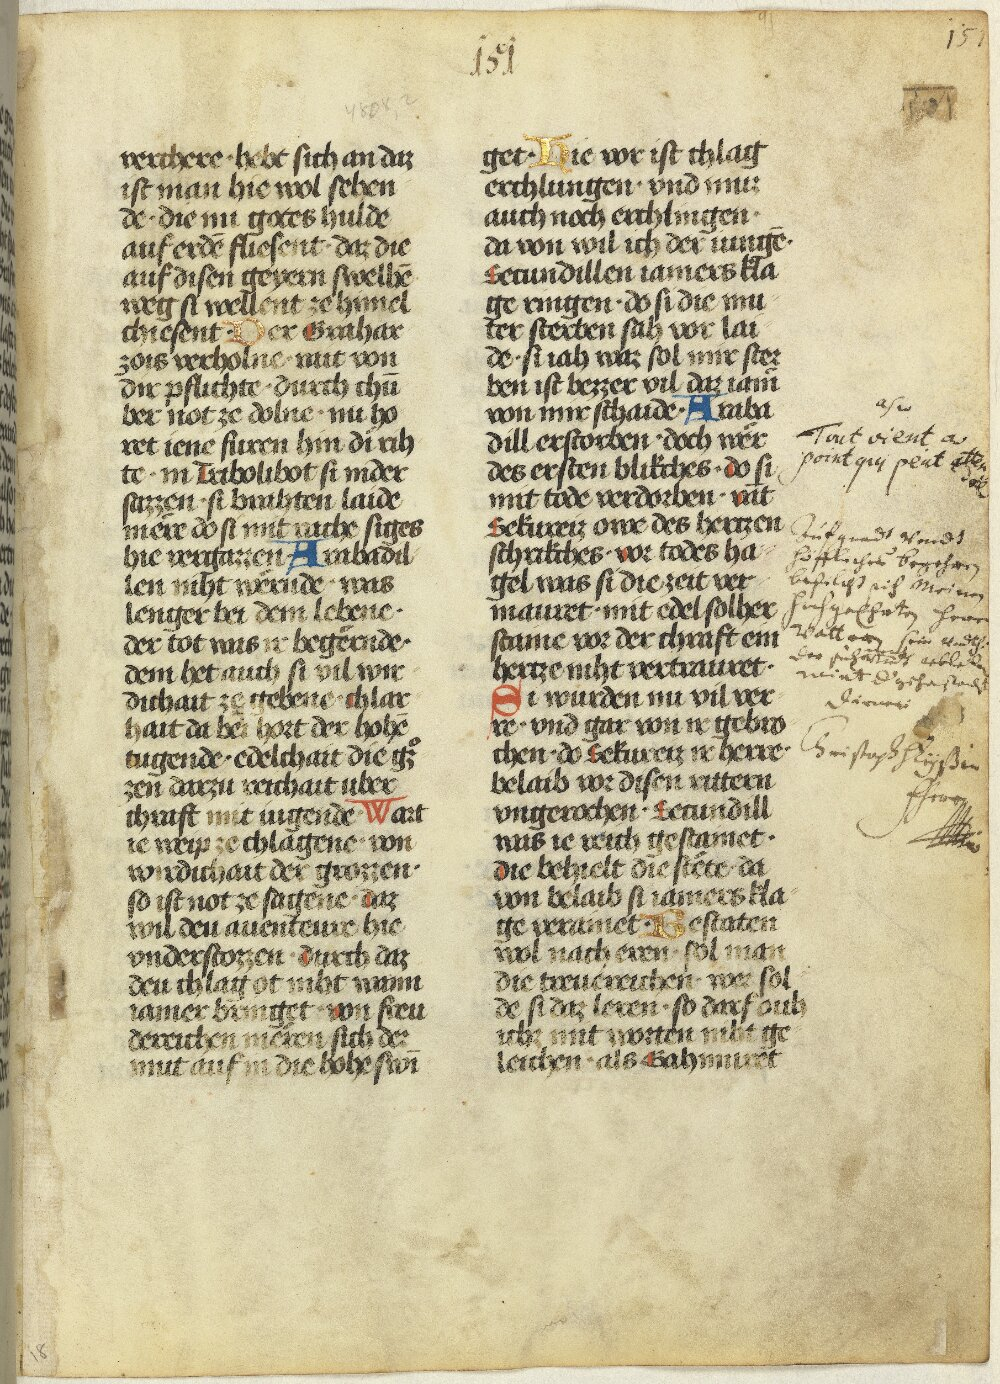 151
151
verchere · hebt sich an daz
ist man hie wol sehen
de · die nu gotes hulde
auf erdē fliesent · daz die
auf disen geyern swelhē
weg si wellent ze himel
chiesent · Der Grahar
zois verholne · mit von
dir pflichte · durch chū
ber not ze dolne · nu ho
ret iene furen hin di rih
te · in Tribolibot si nider
sazzen · si brahten laide
mere do si mit rache siges
hie vergazzen · Arabadil
len niht werende · was
lenger bei dem lebene ·
der tot was ir begernde ·
dem het auch si vil wir
dichait ze gebene · chlar
hait da bei hort der hohe
tugende · edelchait die gz̊
zen̄ darzu reichait uber
chraft mit iugende · Wart
ie weip ze chlagene · von
wirdichait der grozzen ·
so ist not ze sagene · daz
wil deu auenteure hie
vnderstozzen · durch daz
deu chlag ot niht wann
iamer bringet · von freu
dereichen meren sich der
mut auf in die hohe swī
get · Hie vor ist chlag
erchlungen · vnd muz
auch noch erchlingen ·
da von wil ich der iungē ·
Secundillen iamers kla
ge ringen · do si die mu
ter sterben sah vor lai
de · si iah waz sol mir ster
ben ist bezzer vil daz iam̄
von mir schaide · Araba
dill erstorben · doch wer
des ersten blikches · do si
mit tode verdorben · mit
Sekureiz owe des hertzen
schrikches · vor todes ha
gel was si die zeit ver
mauret · mit edel solher
stame vor der chraft ein
hertze niht vertrauret ·
Si wurden nu vil ver
re · vnd gar von ir gebro
chen · do Sekureiz ir herre ·
belaib vor disen rittern
vngerochen · Secundill
was ie reich gestamet ·
die behielt die stete · da
von belaib si iamers kla
ge veramet · Bestaten
wol nach eren · sol man
die treuereichen · wer sol
de si daz leren · so darf ouh
ichz mit worten niht ge
leichen · als Gahmuret
Tout vient a
point qui peut
18